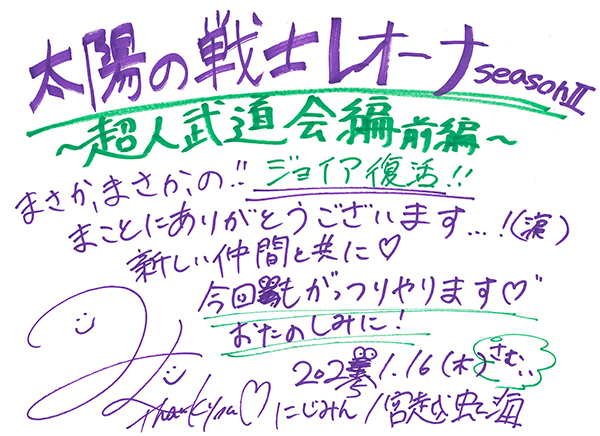 太陽の戦士レオーナ seasonⅡ
～超人武道会編 前編～
まさか、まさか、の!! ジョイア復活!!
まことにありがとうございます…!(涙)
新しい仲間と共に♡
今回もがっつりやります♡
おたのしみに!
202 1.16(木) さむい…
Thank you♡ にじみん/宮越虹海